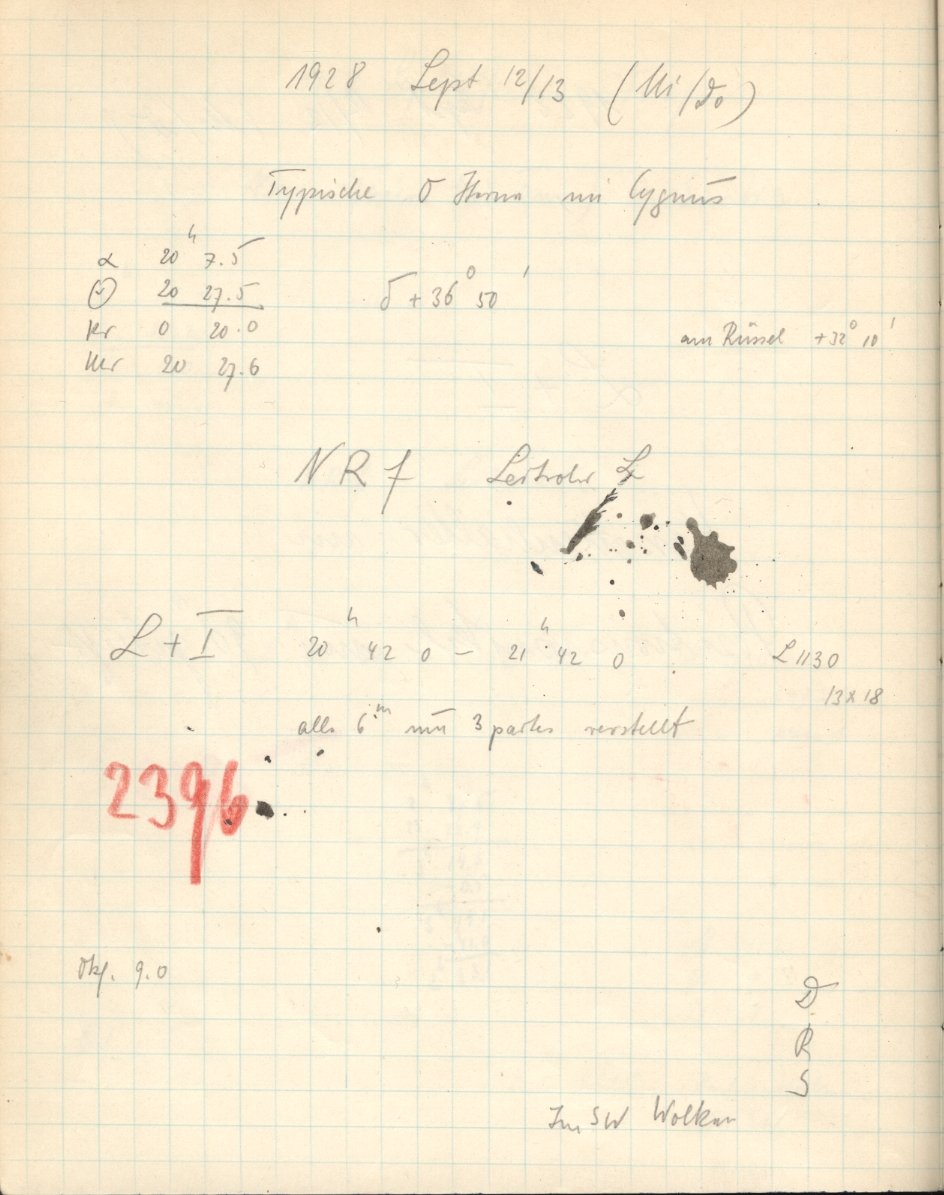 1928 Sept 12/13 (Mi/Do)
Typische O Sterne im Cygnus
α 20ʰ 7.5
☉ 20 27.5 δ + 36° 50'
Kr 0 20.0 am Rüssel + 32° 10'
Mr 20 27.6
NRf Leitrohr L
L + I 20ʰ 42 0 – 21ʰ 42 0 L 1130
13 x 18
alle 6ᵐ um 3 partes verstellt
2396
Okf. 9.0
D
R
S
Im SW Wolken